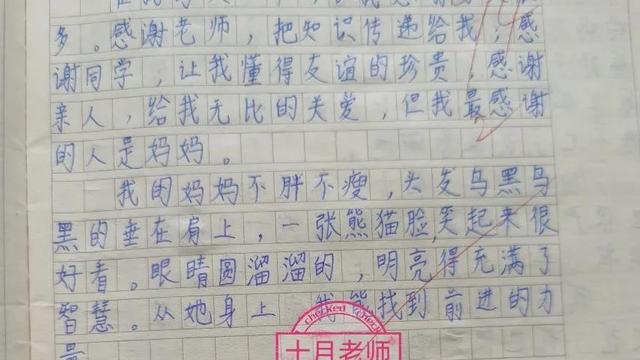 多。感谢老师，把知识传递给我；感
谢同学，让我懂得友谊的珍贵；感谢
亲人，给我无比的关爱，但我最感谢
的人是妈妈。
我的妈妈不胖不瘦，头发乌黑乌
黑的垂在肩上，一张熊猫脸，笑起来很
好看。眼睛圆溜溜的，明亮得充满了
智慧。从她身上，我能找到前进的力
checked
十月老师